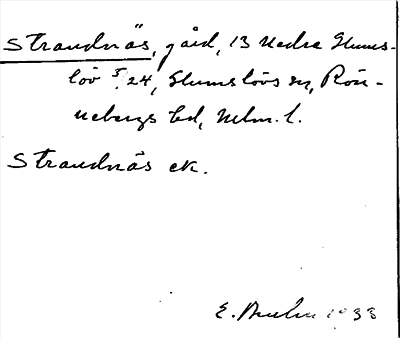 Strandnäs, gård, 13 Nedre Glums-
löv 5:24, Glumslövs sn, Rön-
nebergs hd, Mlm. l.
Strandnäs ek.
E. 1933